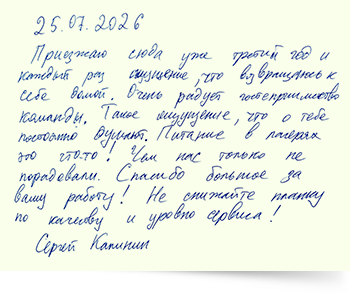 25.07.2026
Приезжаю сюда уже третий год и
каждый раз ощущение, что возвращаюсь к
себе домой. Очень радует гостеприимство
команды. Такое ощущение, что о тебе
постоянно думают. Питание в лагерях
это что-то! Чем нас только не
порадовали. Спасибо большое за
вашу работу! Не снижайте планку
по качеству и уровню сервиса!
Сергей Калинин